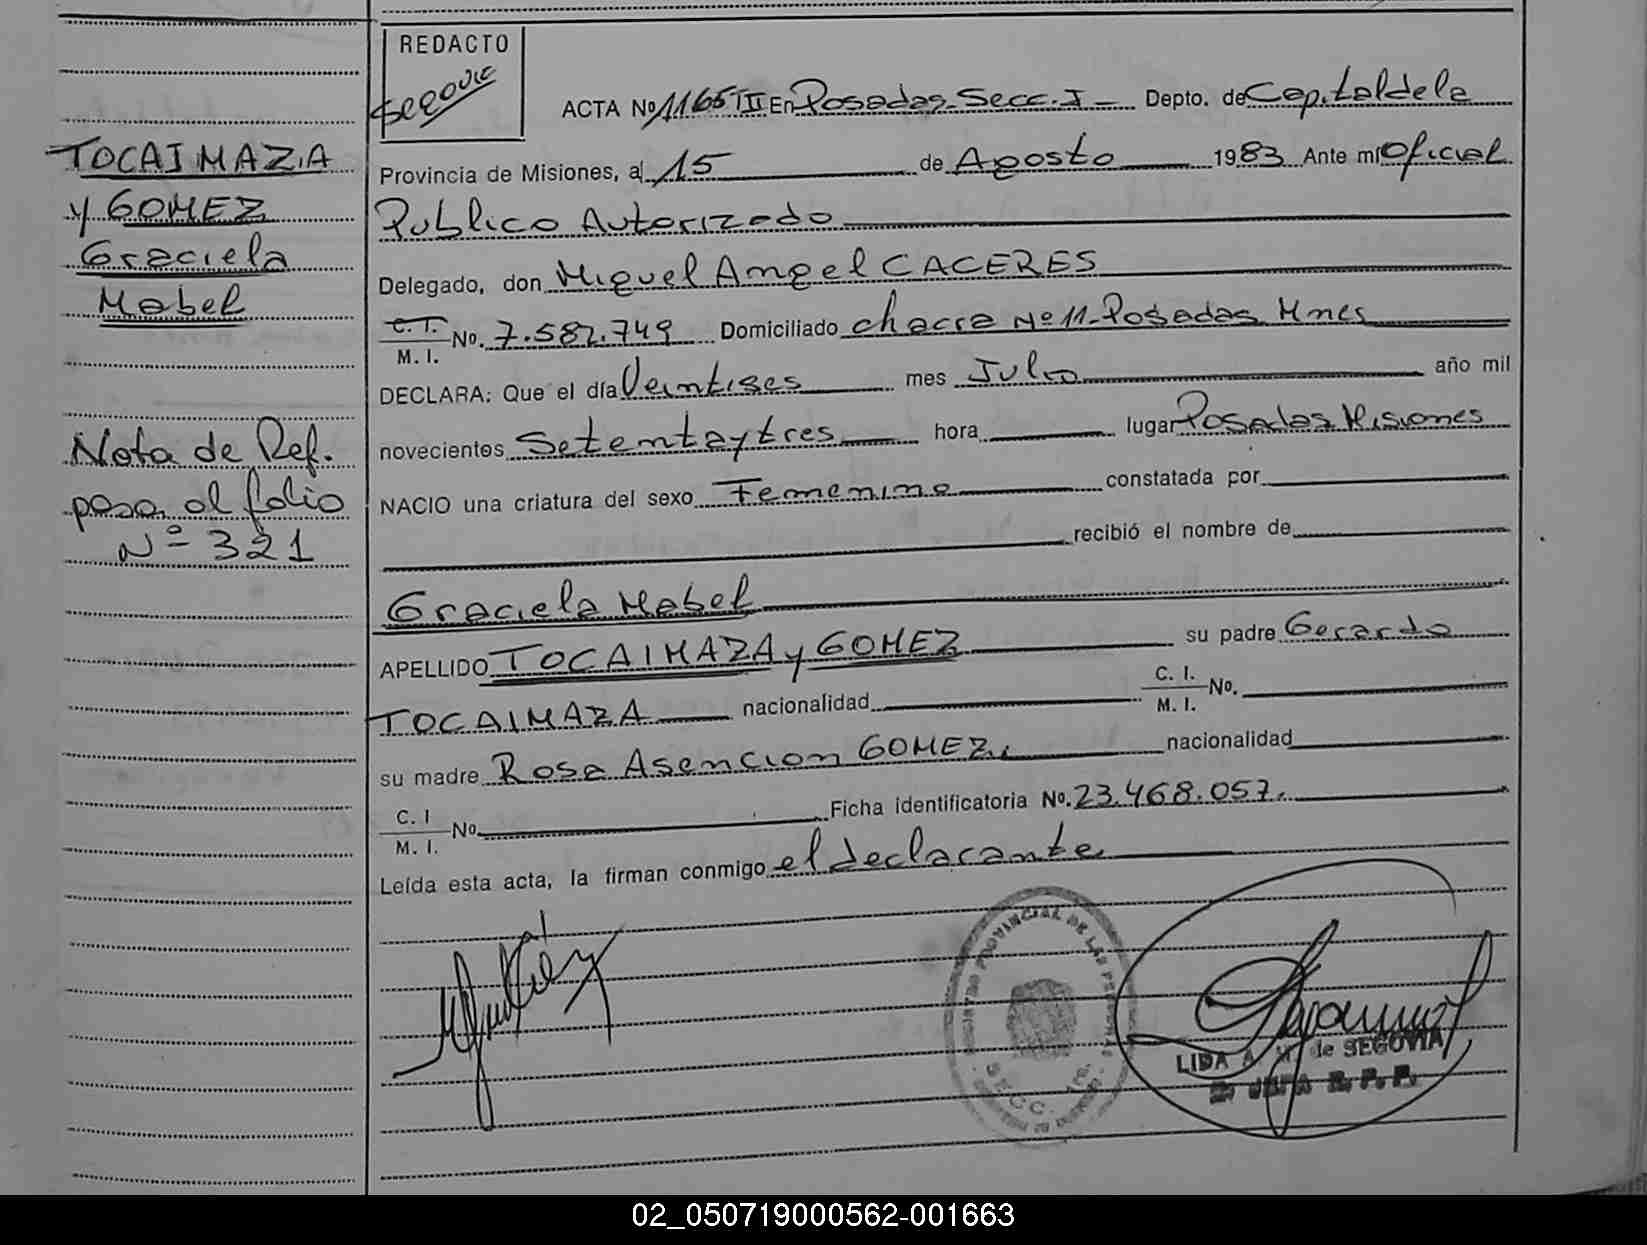 REDACTO
SEGOVIA
ACTA Nº 1165 TII En Posadas Secc. I Depto. de Capital de la
Provincia de Misiones, al 15 de Agosto 1983 Ante mí Oficial
Publico Autorizado
Delegado, don Miguel Angel CACERES
C. I.
M. I. No. 7.582.749 Domiciliado chacra Nº 11-Posadas Mnes
DECLARA: Que el día Veintises mes Julio año mil
novecientos Setentaytres hora lugar Posadas Misiones
NACIO una criatura del sexo Femenino constatada por
recibió el nombre de
Graciela Mabel
APELLIDO TOCAIMAZA y GOMEZ su padre Gerardo
TOCAIMAZA nacionalidad C. I.
M. I. No.
su madre Rosa Asencion GOMEZ. nacionalidad
C. I
M. I. No. Ficha identificatoria No. 23.468.057.
Leída esta acta, la firman conmigo el declarante
TOCAIMAZA
y GOMEZ
Graciela
Mabel
Nota de Ref.
pasa al folio
Nº 321
REGISTRO PROVINCIAL DE LAS PERSONAS
SECC.
LIDA A. de SEGOVIA
JEFA R. P. P.
02_050719000562-001663